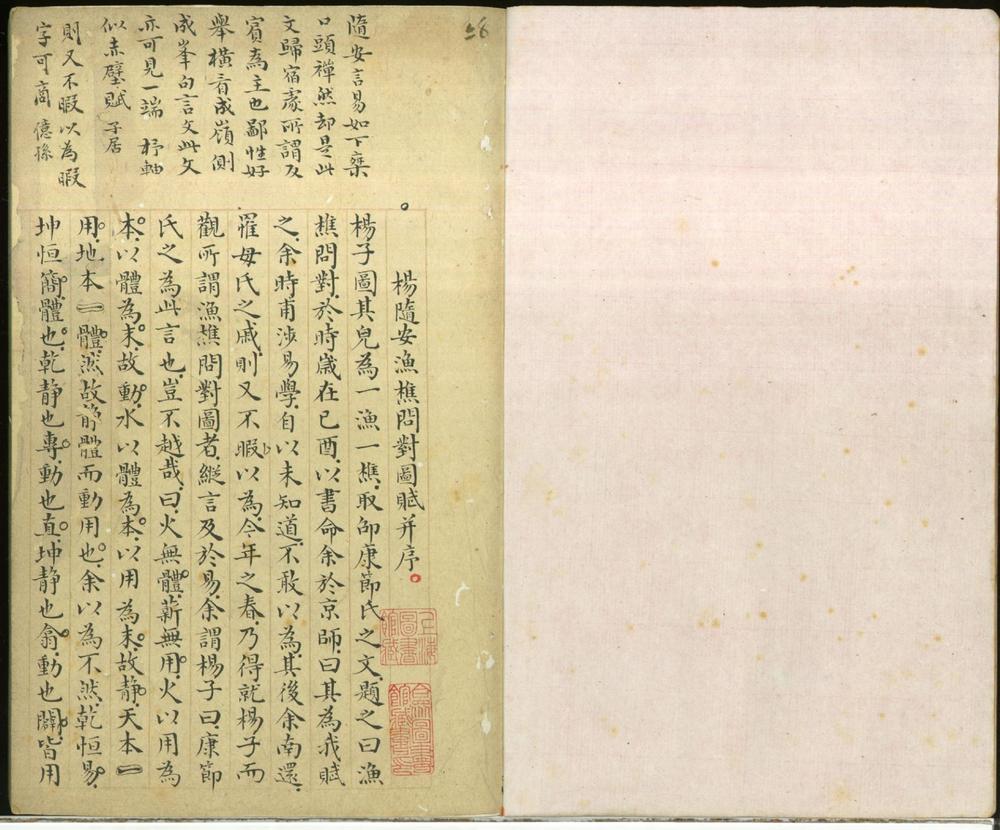 隨安言易如下乘
口頭禪然却是此
文歸宿處所謂反
賓為主也鄙性好
舉橫看成嶺側
成峯句言文此文
亦可見一端 杼軸
似赤壁賦 子居
則又不暇以為暇
字可商 億孫
楊隨安漁樵問對圖賦并序
楊子圖其皃為一漁一樵取邵康節氏之文題之曰漁
樵問對於時歲在己酉以書命余於京師曰其為我賦
之余時甫涉易學自以未知道不敢以為其後余南還
罹母氏之戚則又不暇以為今年之春乃得就楊子而
觀所謂漁樵問對圖者縱言及於易余謂楊子曰康節
氏之為此言也豈不越哉曰火無體薪無用火以用為
本以體為末故動水以體為本以用為末故静天本一
用地本一體然故静體而動用也余以為不然乾恒易
坤恒簡體也乾静也專動也直坤静也翕動也闢皆用
上海圖書館藏